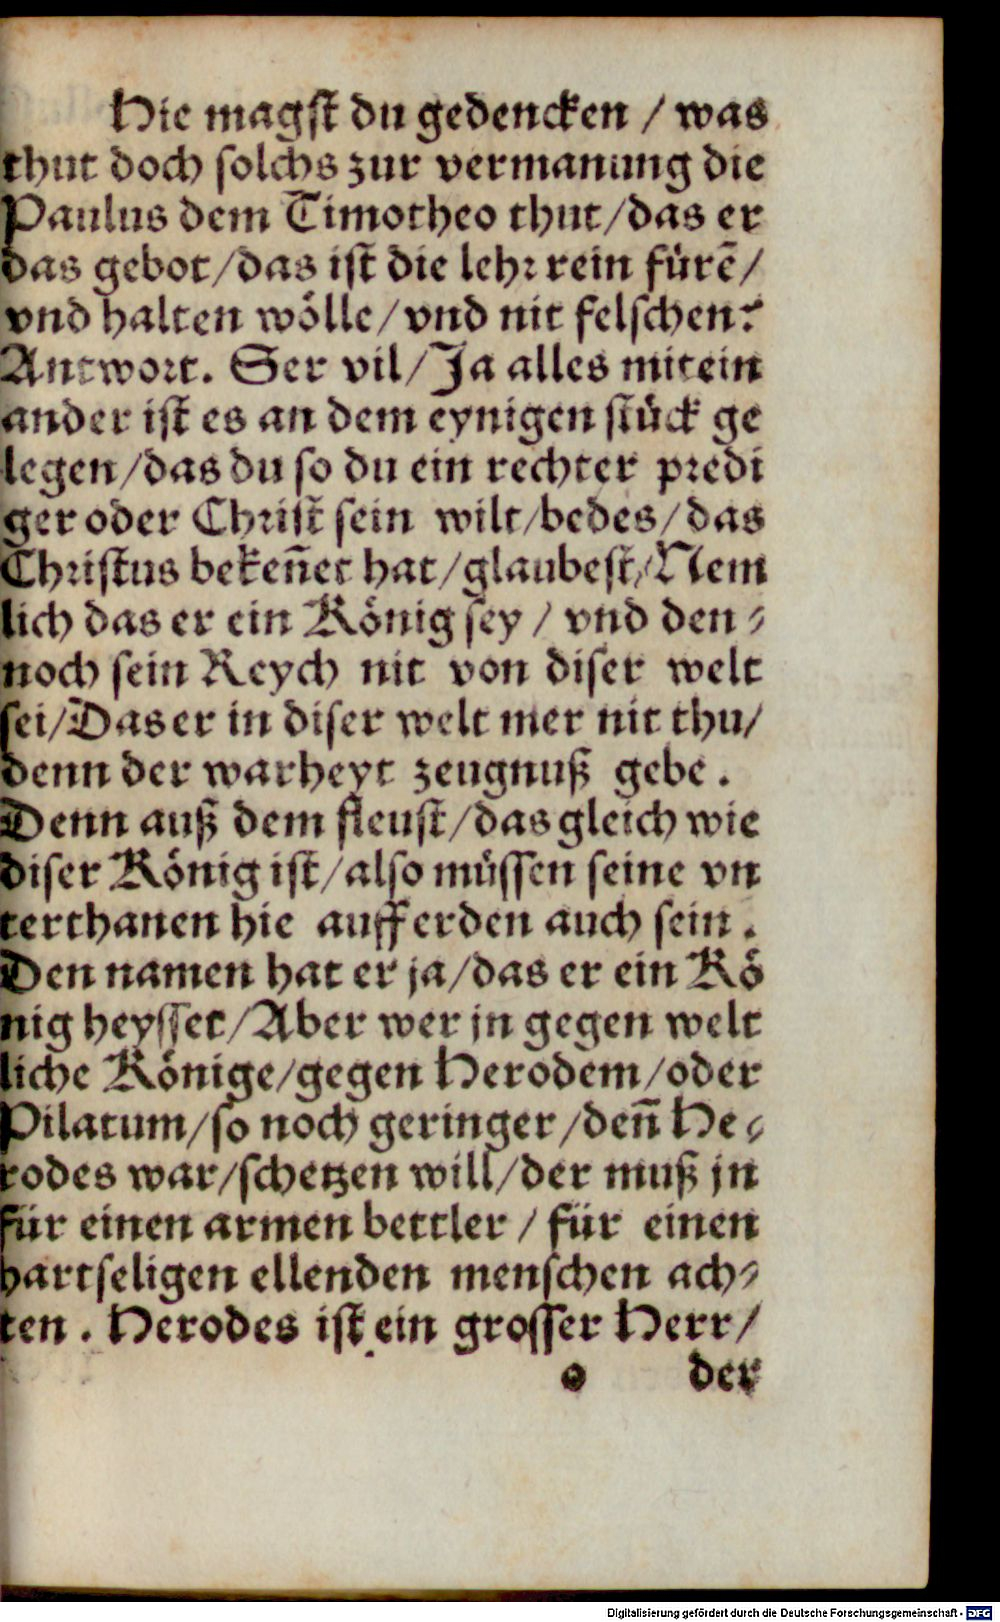 Hie magst du gedencken / was
thut doch solchs zur vermanung die
Paulus dem Timotheo thut/das er
das gebot/das ist die lehr rein fürē/
vnd halten wölle/vnd nit felschen?
Antwort. Ser vil/Ja alles mitein
ander ist es an dem eynigen stück ge
legen/das du so du ein rechter predi
ger oder Christ sein wilt/bedes/das
Christus bekeñet hat/glaubest/Nem
lich das er ein König sey / vnd den⸗
noch sein Reych nit von diser welt
sei/Das er in diser welt mer nit thu/
denn der warheyt zeugnuß gebe.
Denn auß dem fleust/das gleich wie
diser König ist/also müssen seine vn
terthanen hie auff erden auch sein.
Den namen hat er ja/das er ein Kö
nig heysset/Aber wer jn gegen welt
liche Könige/gegen Herodem/oder
Pilatum/so noch geringer/deñ He⸗
rodes war/schetzen will/der muß jn
für einen armen bettler / für einen
hartseligen ellenden menschen ach⸗
ten. Herodes ist ein grosser Herr/
e der
Digitalisierung gefördert durch die Deutsche Forschungsgemeinschaft - DFG